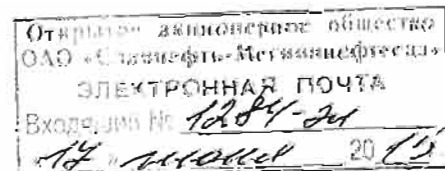 Открытое акционерное общество
ОАО «Славнефть-Мегионнефтегаз»
ЭЛЕКТРОННАЯ ПОЧТА
Входящий № 1284-эл
«17» июня 2015